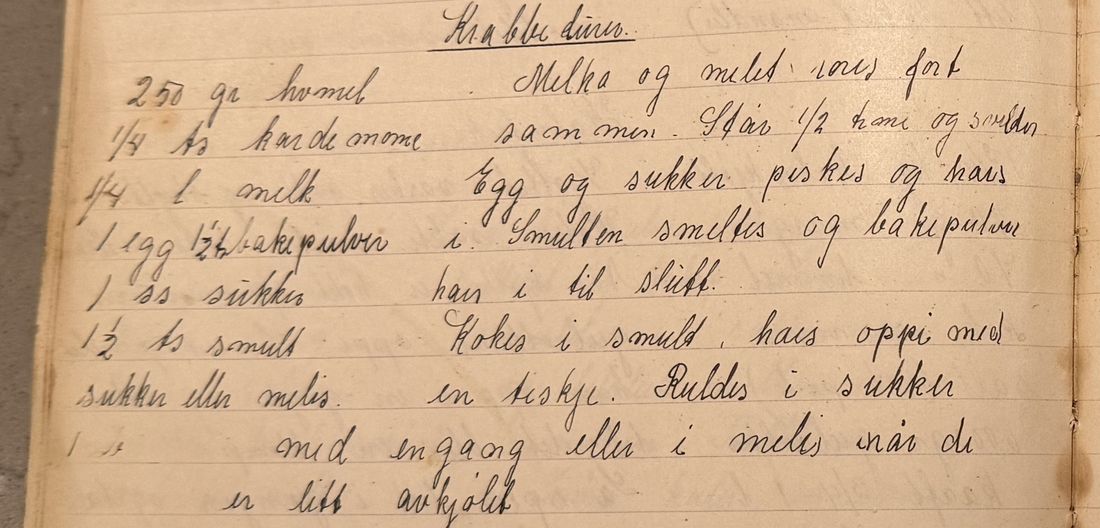 Krabbeduer.
250 gr hvmel Melka og melet røres fort
1/4 ts kardemome sammen. Står 1/2 time og sveller
1/4 l melk Egg og sukker piskes og haes
1 egg 1 1/2 ts bakepulver i. Smulten smeltes og bakepulver
1 ss sukker haes i til slutt.
1 1/2 ts smult Kokes i smult, haes oppi med
sukker eller melis. en teskje. Ruldes i sukker
1 med engang eller i melis når de
er litt avkjølet